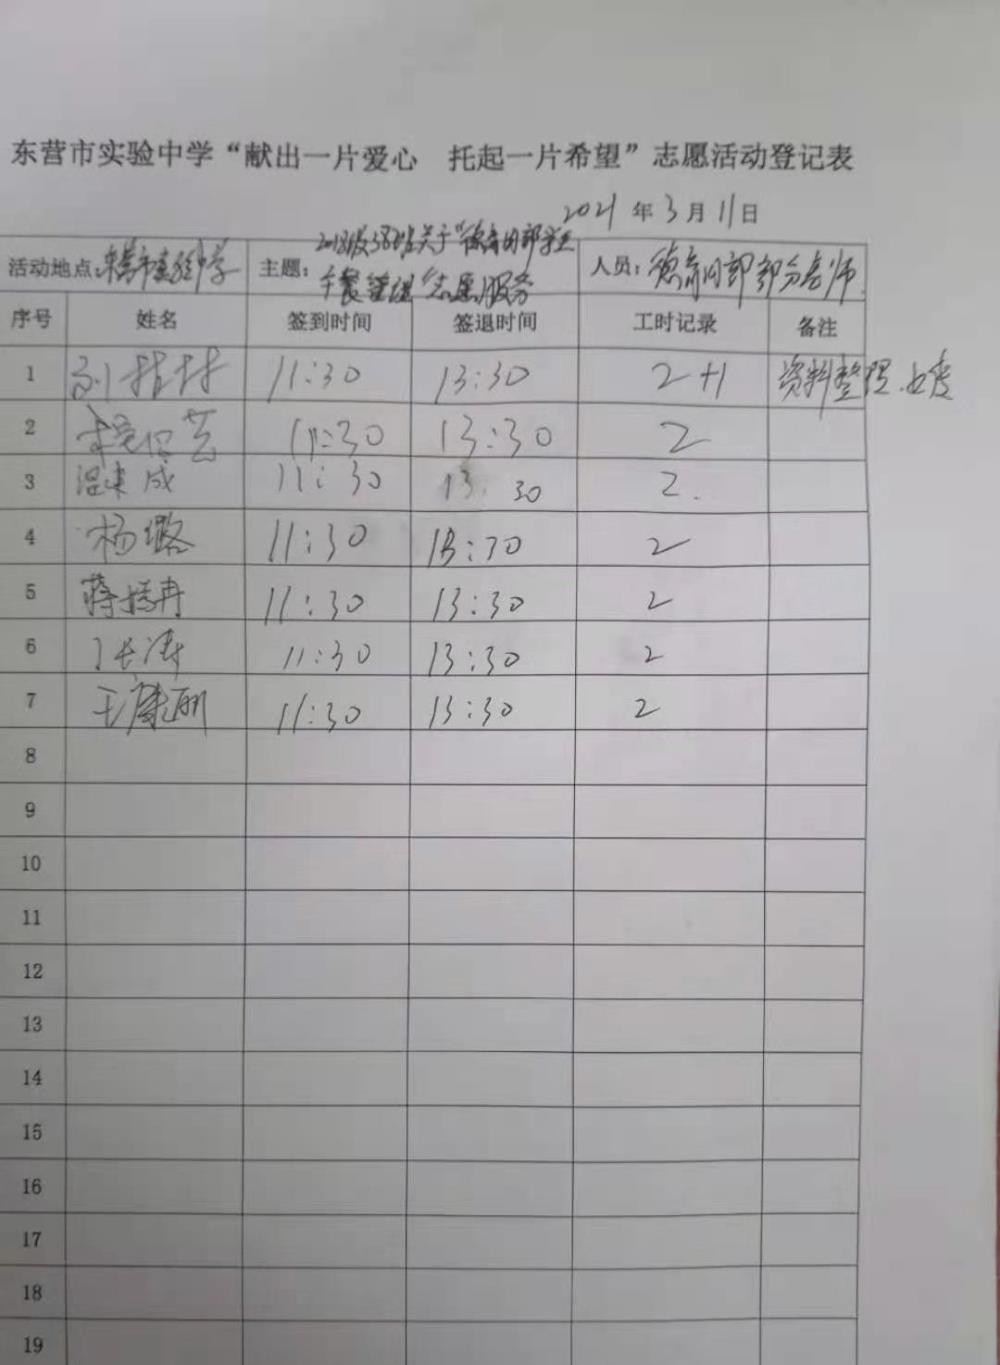 东营市实验中学“献出一片爱心 托起一片希望”志愿活动登记表
2021 年 3 月 11 日
活动地点:东营市实验中学 主题: 2018级38班关于“德育内部学生午餐管理”志愿服务 人员:德育内部部分老师
序号 姓名 签到时间 签退时间 工时记录 备注
1 刘 11:30 13:30 2+1 资料整理
2 11:30 13:30 2
3 温来成 11:30 13:30 2.
4 杨璐 11:30 13:30 2
5 蒋 11:30 13:30 2
6 张涛 11:30 13:30 2
7 王康丽 11:30 13:30 2
8
9
10
11
12
13
14
15
16
17
18
19